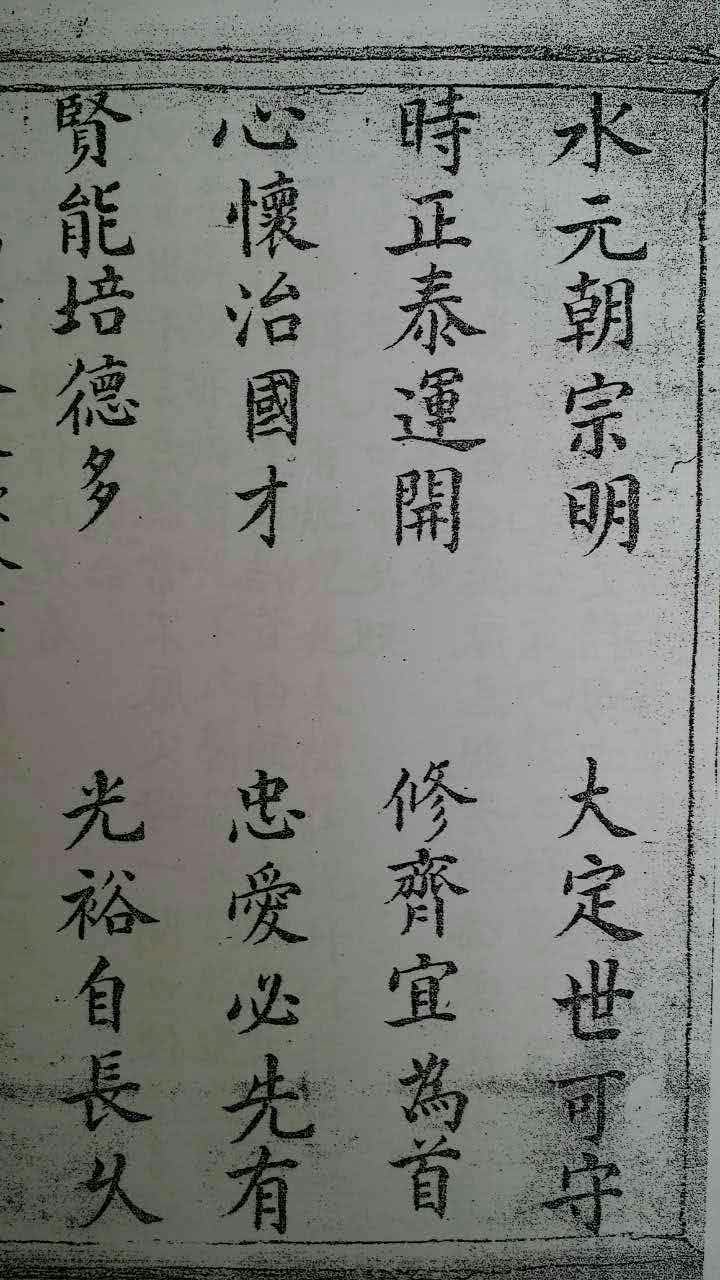 水元朝宗明 大定世可守
時正泰運開 修齊宜為首
心懷治國才 忠愛必先有
賢能培德多 光裕自長久